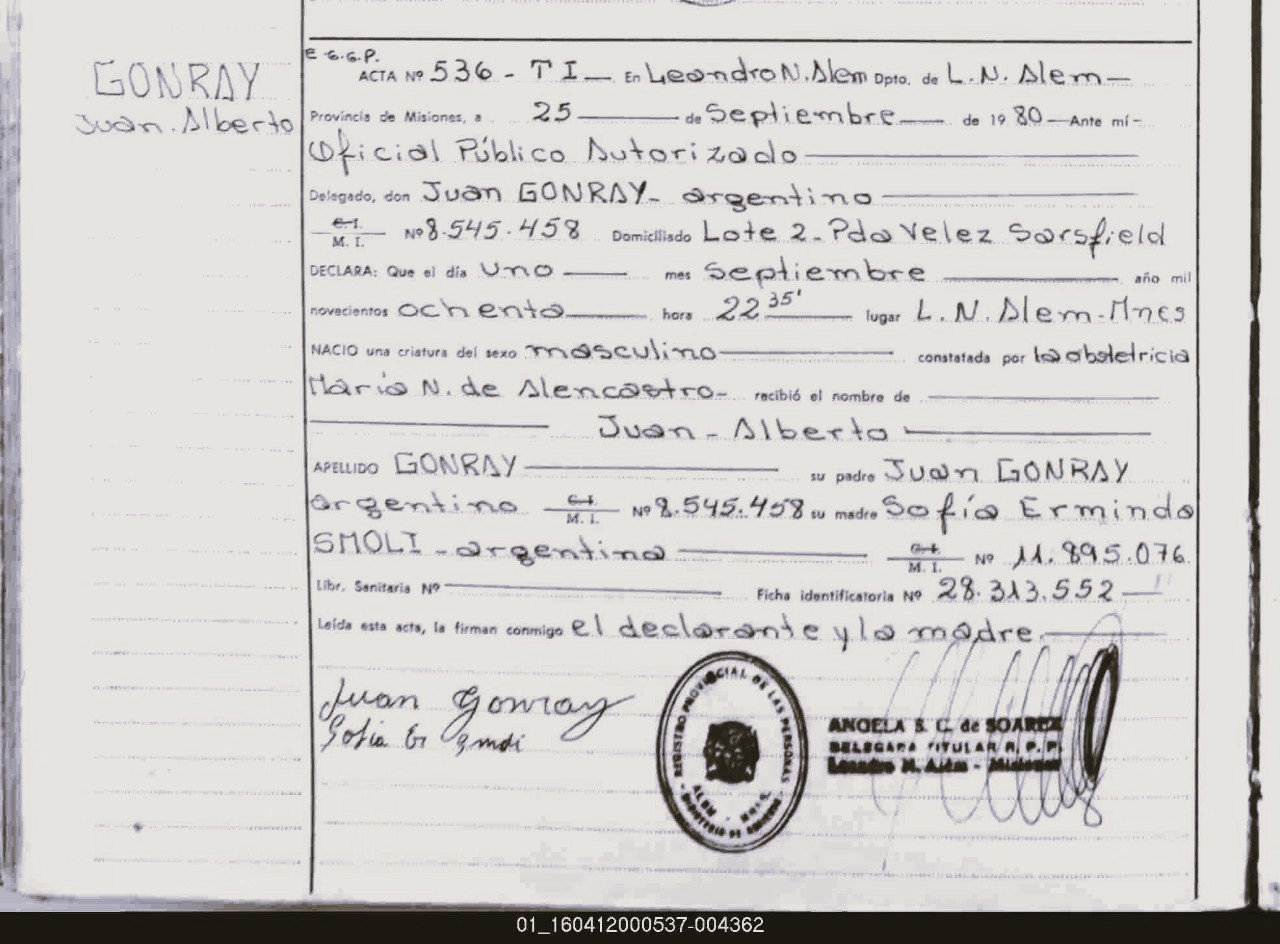 GONRAY
Juan. Alberto
E G.G.P.
ACTA Nº 536 - T I — En Leandro N. Alem Dpto. de L. N. Alem —
Provincia de Misiones, a 25 — de Septiembre — de 19 80 — Ante mí -
Oficial Público Autorizado
Delegado, don Juan GONRAY - argentino
C.I. M. I. Nº 8.545.458 Domiciliado Lote 2 - Pda Velez Sarsfield
DECLARA: Que el día uno — mes Septiembre — año mil
novecientos ochenta — hora 22 35' — lugar L. N. Alem - Mnes
NACIO una criatura del sexo masculino — constatada por la obstetricia
María N. de Alencastro - recibió el nombre de
Juan - Alberto
APELLIDO GONRAY — su padre Juan GONRAY
argentino C.I. M. I. Nº 8.545.458 su madre Sofía Erminda
SMOLI - argentina — C.I. M. I. Nº 11.895.076
Libr. Sanitaria Nº — Ficha identificatoria Nº 28.313.552 —
Leída esta acta, la firman conmigo el declarante y la madre. —
Juan Gonray
Sofia
REGISTRO PROVINCIAL DE LAS PERSONAS
ALEM - MNES.
MINISTERIO DE GOBIERNO
ANGELA S. C. de SOAREZ
DELEGADA TITULAR R. P. P.
Leandro N. Alem - Misiones
01_160412000537-004362